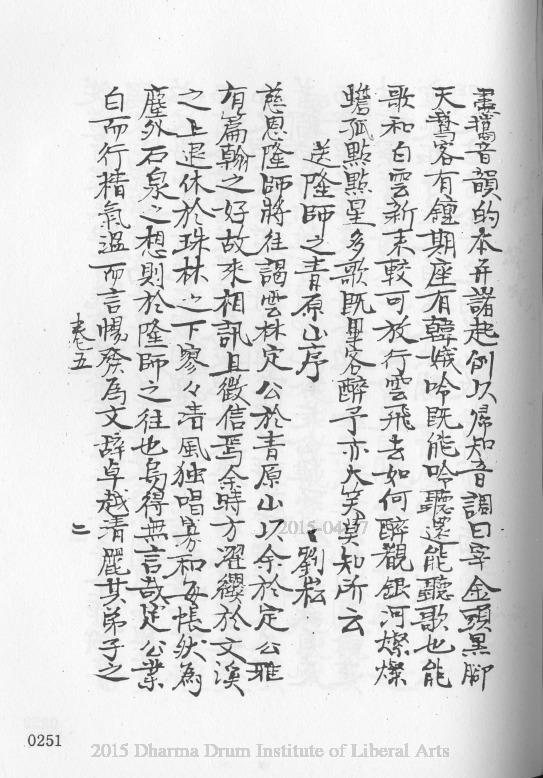 盡舊音韻的本并諸起例以歸知音調曰宰金頭黑腳
天鵞客有鍾期座有韓娥吟既能吟聽還能聽歌也能
歌和白雲新來較可放行雲飛去如何醉觀銀河燦燦
蟾孤點點星多歌既畢客醉予亦大笑莫知所云
送隆師之青原山序
劉崧
慈恩隆師將往謁雲林定公於青原山以余於定公雅
有篇翰之好故來相訊且徵信焉余時方濯纓於文溪
之上退休於珠林之下寥々清風独唱寡和每悵然為
塵外石泉之想則於隆師之往也烏得無言哉定公業
白而行精氣溫而言暢發為文辞卓越清麗其弟子之
卷五
二
0251
2015-04-17
2015 Dharma Drum Institute of Liberal Arts